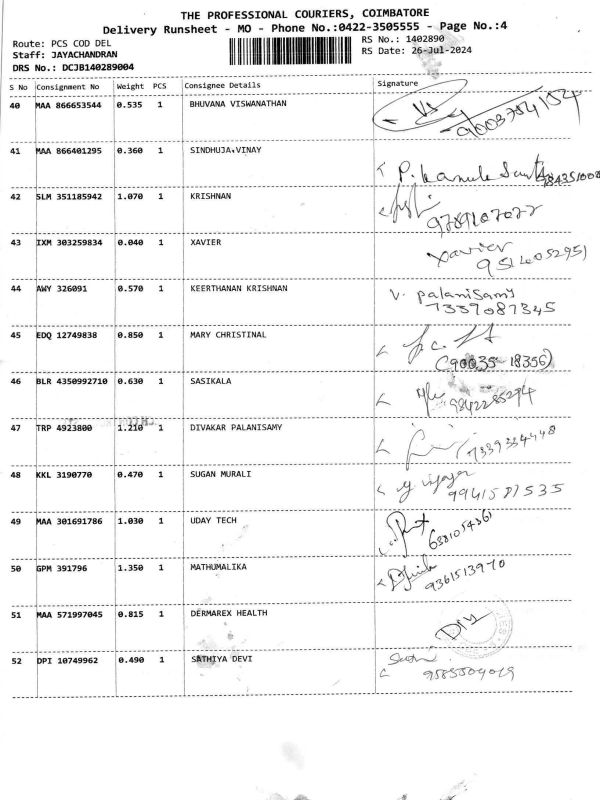 THE PROFESSIONAL COURIERS, COIMBATORE
Delivery Runsheet - MO - Phone No.:0422-3505555 - Page No.:4
Route: PCS COD DEL RS No.: 1402890
Staff: JAYACHANDRAN RS Date: 26-Jul-2024
DRS No.: DCJB140289004
S No Consignment No Weight PCS Consignee Details Signature
40 MAA 866653544 0.535 1 BHUVANA VISWANATHAN
9003754154
41 MAA 866401295 0.360 1 SINDHUJA.VINAY
42 SLM 351185942 1.070 1 KRISHNAN
9789107072
43 IXM 303259834 0.040 1 XAVIER Xavier
9514052951
44 AWY 326091 0.570 1 KEERTHANAN KRISHNAN V. Palanisamy
7339087345
45 EDQ 12749838 0.850 1 MARY CHRISTINAL
(90035-18356)
46 BLR 4350992710 0.630 1 SASIKALA
9842285294
47 TRP 4923800 1.210 1 DIVAKAR PALANISAMY
7339334448
48 KKL 3190770 0.470 1 SUGAN MURALI
9941587535
49 MAA 301691786 1.030 1 UDAY TECH
6381054361
50 GPM 391796 1.350 1 MATHUMALIKA
9361513970
51 MAA 571997045 0.815 1 DERMAREX HEALTH
52 DPI 10749962 0.490 1 SATHIYA DEVI
9585504019